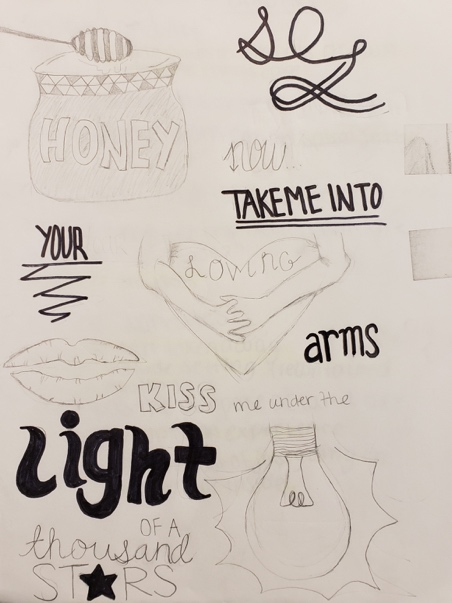 so
HONEY
now...
TAKE ME INTO
YOUR
LOVING
arms
KISS me under the
light
OF A
thousand
STARS